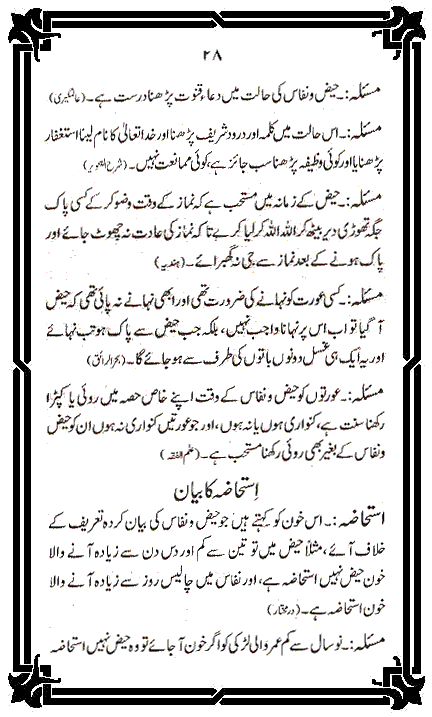 ۲۸
مسئلہ:۔ حیض و نفاس کی حالت میں دعاء قنوت پڑھنا درست ہے۔ (عالمگیری)
مسئلہ:۔ اس حالت میں کلمہ اور درود شریف پڑھنا اور خدا تعالیٰ کا نام لینا استغفار
پڑھنا یا اور کوئی وظیفہ پڑھنا سب جائز ہے، کوئی ممانعت نہیں۔ (شرح التنویر)
مسئلہ:۔ حیض کے زمانہ میں مستحب ہے کہ نماز کے وقت وضو کر کے کسی پاک
جگہ تھوڑی دیر بیٹھ کر اللہ اللہ کر لیا کرے تاکہ نماز کی عادت نہ چھوٹ جائے اور
پاک ہونے کے بعد نماز سے جی نہ گھبرائے۔ (ہندیہ)
مسئلہ:۔ کسی عورت کو نہانے کی ضرورت تھی اور ابھی نہانے نہ پائی تھی کہ حیض
آ گیا تو اب اس پر نہانا واجب نہیں، بلکہ جب حیض سے پاک ہو تب نہائے
اور یہ ایک ہی غسل دونوں باتوں کی طرف سے ہو جائے گا۔ (بحر الرائق)
مسئلہ:۔ عورتوں کو حیض و نفاس کے وقت اپنے خاص حصہ میں روئی یا کپڑا
رکھنا سنت ہے، کنواری ہوں یا نہ ہوں، اور جو عورتیں کنواری نہ ہوں ان کو حیض
و نفاس کے بغیر بھی روئی رکھنا مستحب ہے۔ (علم الفقہ)
اِستحاضہ کا بیان
استحاضہ:۔ اس خون کو کہتے ہیں جو حیض و نفاس کی بیان کردہ تعریف کے
خلاف آئے، مثلاً حیض میں تو تین سے کم اور دس دن سے زیادہ آنے والا
خون حیض نہیں استحاضہ ہے، اور نفاس میں چالیس روز سے زیادہ آنے والا
خون استحاضہ ہے۔ (در مختار)
مسئلہ:۔ نو سال سے کم عمر والی لڑکی کو اگر خون آ جائے تو وہ حیض نہیں استحاضہ